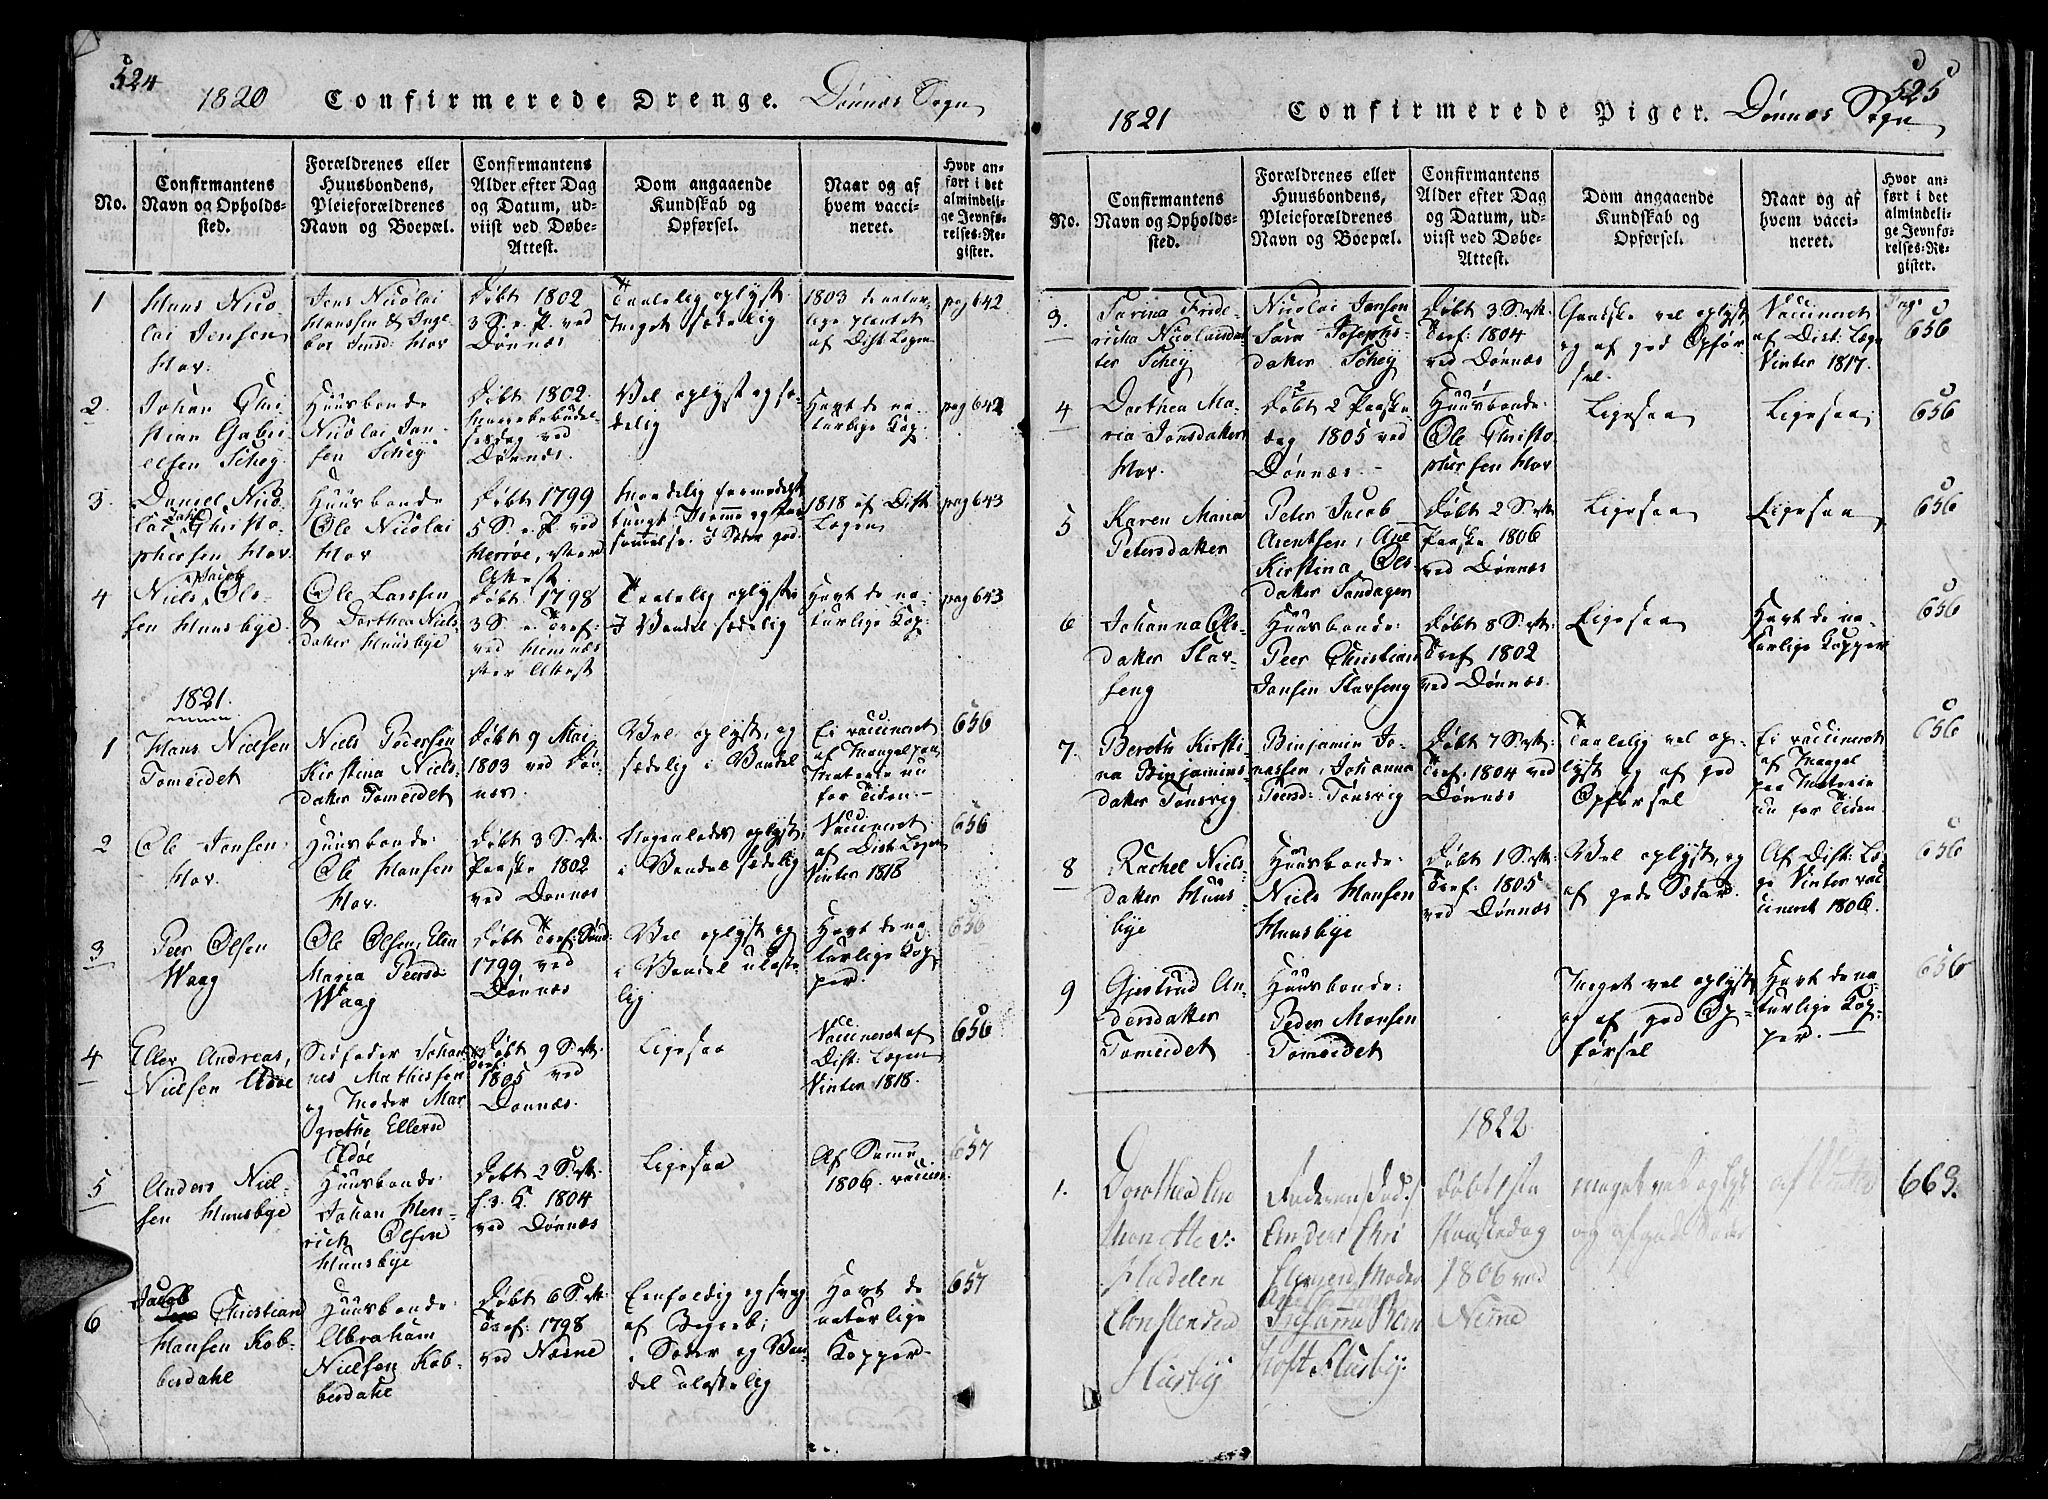 524
1820 Confirmerede Drenge. Dønnæs Sogn
No.
Confirmantens
Navn og Opholds-
sted.
Forældrenes eller
Huusbondens,
Pleieforældrenes
Navn og Boepæl.
Confirmantens
Alder efter Dag
og Datum, ud-
viist ved Døbe-
Attest.
Dom angaaende
Kundskab og
Opførsel.
Naar og af
hvem vacci-
neret.
Hvor an-
ført i det
almindeli-
ge Jevnfø-
relses-Re-
gister.
1
Hans Nico-
lai Jensen
Hov.
Jens Nicolai
Hanssen & Inge-
bor Hov
Døbt 1802
3 S. e. P. ved
Dønnæs
Taalelig oplyst
Meget sædelig
1803 de natur-
lige
af Dist: Lægen
pag 642
2.
Johan Chri-
stian Gabri-
elsen Schey
Huusbonde
Nicolai Jen-
sen Schey
Døbt 1802.
Mariæ bebudel-
sesdag ved
Dønnæs.
Vel oplyst og sæ-
delig
Havt de na-
turlige Kop:
pag 642
3.
Daniel Nico-
lai Christo-
phersen Hov.
Huusbonde
Ole Nicolai
Hov
Døbt 1799
5 S. e. P. ved
Herøe,
Attest.
tungt Nemme og
. I Sæder god.
1818 af Distr
Lægen
pag 643
4
Niels Jacob Ols-
sen Huusbye.
Ole Larssen
& Dorthea Niels-
datter Huusbye
Døbt 1798
3 S. e. Tref:
ved Hemnæs
Attest
Taalelig oplyst
I Vandel sædelig
Havt de na-
turlige Kop:
pag 643
1821.
1
Hans Nielsen
Tomeidet
Niels Pedersen
Kirstina Niels-
datter Tomeidet
Døbt 9 Mai
1803 ved Døn-
næs.
Vel oplyst, og
sædelig i Vandel
Ei vaccineret
af Mangel paa
Materie nu
for Tiden.
656
2
Ole Jensen
Hov.
Huusbonde:
Ole Hansen
Hov.
Døbt 3 S. eft:
Paaske 1802
ved Dønnæs
Nogenledes oplyst,
i Vandel sædelig
Vaccineret
af Dist: Lægen
Vinter 1818
656
3
Peer Olsen
Waag
Ole Olsen, Elen
Maria Peersd:
Waag
Døbt Tref: Sønd:
1799 ved
Dønnæs
Vel oplyst og
i Vandel ulaste-
lig
Havt de na-
turlige Kop-
per.
656
4
Eller Andreas
Nielsen
Stedfader Johan-
nes Mathissen
og Moder Mar-
grethe Ellersd
Døbt 9 S. eft:
Tref: 1805 ved
Dønnæs.
Ligesaa
Vaccineret af
Dist: Lægen
Vinter 1818.
656
5
Anders Niel-
sen Huusbye
Huusbonde:
Johan Hen-
rich Olsen
Huusbye
Døbt 2 S. eft:
H. 3. K. 1804
ved Dønnæs
Ligesaa
Af Samme
1806. vaccin:
657
6
Jacob Christian
Hansen Kob-
berdahl
Huusbonde:
Abraham
Nielsen Kob-
berdahl
Døbt 6 S. eft:
Tref: 1798
ved Næsne
Eenfoldig og svag
af Begreb;
i Sæder og Van-
del ulastelig
Havt de
naturlige
Kopper
657
525
1821 Confirmerede Piger. Dønnæs Sogn
No.
Confirmantens
Navn og Opholds-
sted.
Forældrenes eller
Huusbondens,
Pleieforældrenes
Navn og Boepæl.
Confirmantens
Alder efter Dag
og Datum, ud-
viist ved Døbe-
Attest.
Dom angaaende
Kundskab og
Opførsel.
Naar og af
hvem vacci-
neret.
Hvor an-
ført i det
almindeli-
ge Jevnfø-
relses-Re-
gister.
3.
Sarina Fride-
richa Nicolaisdat-
ter Schey
Nicolai Jensen
Sara Josephs-
datter Schey
Døbt 3 S. eft:
Tref: 1804
ved Dønnæs
Gandske vel oplyst
og af god Opfør-
sel.
Vaccineret
af Dist: Læge
Vinter 1817.
Pag:
656
4
Dorthea Ma-
ria Jensdatter
Hov.
Døbt 2 Paaske
dag 1805 ved
Dønnæs.
Huusbonde:
Ole Christo-
phersen Hov
Ligesaa
Ligesaa
656
5
Karen Maria
Petersdatter
Peter Jacob
Arentsen, Ane
Kirstina Ols-
datter Sandagen
Døbt 2 S. eft
Paaske 1806
ved Dønnæs
Ligesaa
Ligesaa
656
6
Johanna Ols-
datter Slap-
seng
Huusbonde:
Peer Christian
Jansen Slapseng
Døbt 8 S. eft:
Tref 1802
ved Dønnæs.
Ligesaa
Havt de na-
turlige Kopper
656
7.
Bereth Kirsti-
na Binjamins-
datter Tønsvig
Binjamin Jo-
nassen, Johanna
Peersd: Tønsvig
Døbt 7 S. eft:
Tref: 1804 ved
Dønnæs
Taalelig vel op-
lyst og af god
Opførsel
Ei vaccineret
af Mangel
paa Materie
nu for Tiden
656
8
Rachel Niels-
datter Huus-
bye
Huusbonde:
Niels Hansen
Huusbye
Døbt 1 S. eft:
Tref: 1805
ved Dønnæs
Vel oplyst, og
af gode Sæder.
Af Dist: Læ-
ge Vinter vac-
cineret 1806.
656
9
Gjertrud An-
dersdatter
Tomeidet
Huusbonde:
Peder Monsen
Tomeidet
Meget vel oplyst
og af god Op-
førsel
Havt de na-
turlige Kop-
per.
656
1822
1.
Dorothea An
Husby
Faderen /død./
Anders Chri
Moder
Husby:
Døbt 1ste
Paaskedag
1806 ved
Nesne
meget vel oplyst
og af gode Sæder
af
663.